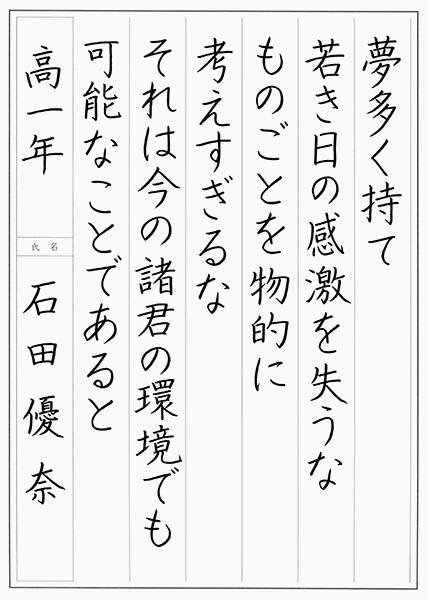 夢多く持て
若き日の感激を失うな
ものごとを物的に
考えすぎるな
それは今の諸君の環境でも
可能なことであると
高一年
氏名
石田優奈